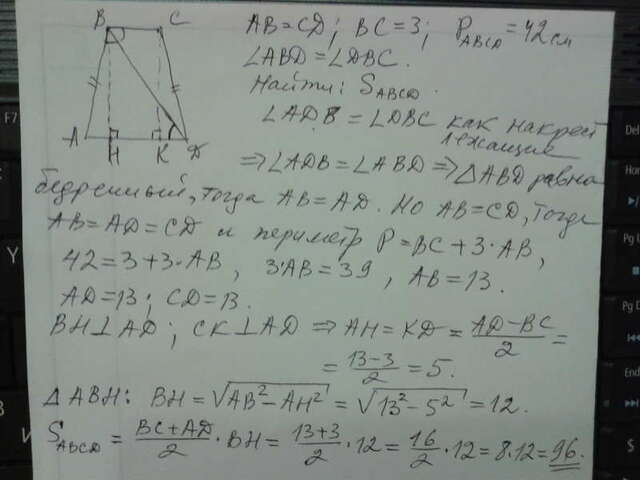 AB=CD; BC=3; P_ABCD=42см
∠ABD=∠DBC.
Найти: S_ABCD.
∠ADB=∠DBC как накрест
лежащие
⇒∠ADB=∠ABD⇒△ABD равно
бедренный, тогда AB=AD. Но AB=CD, тогда
AB=AD=CD и периметр P=BC+3·AB,
42=3+3·AB, 3·AB=39, AB=13.
AD=13; CD=13.
BH⊥AD; CK⊥AD ⇒ AH=KD=(AD−BC)/2=
=(13−3)/2=5.
△ABH: BH=√(AB²−AH²)=√(13²−5²)=12.
S_ABCD=(BC+AD)/2·BH=(13+3)/2·12=16/2·12=8·12=96.
B C
A H K D
F7
Y
Del
Hom
Pg U
Pg D
End
B